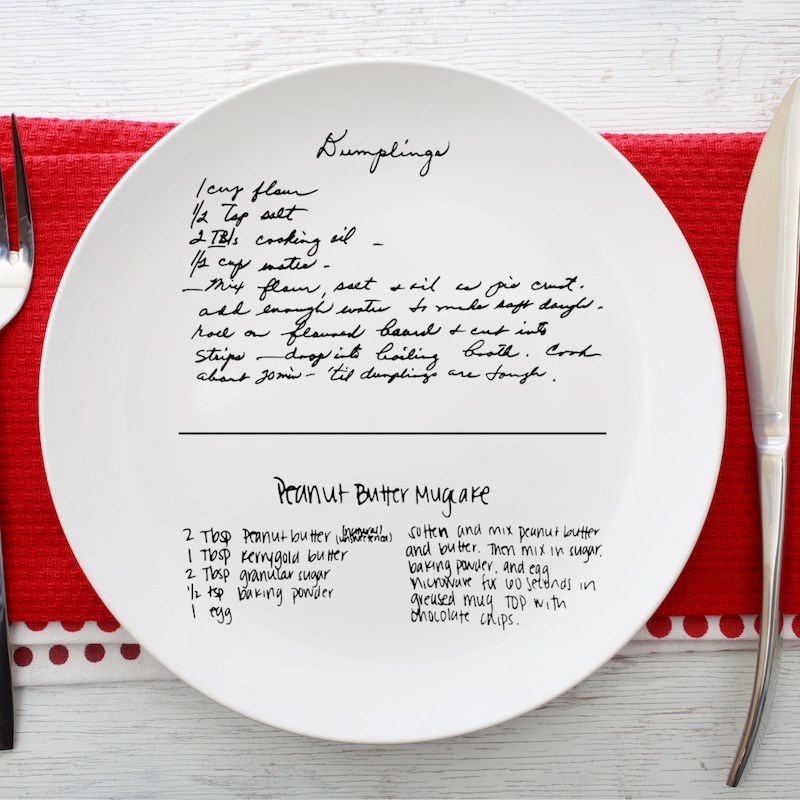 Dumplings
1 cup flour
1/2 Tsp salt
2 TBls cooking oil -
1/2 cup water -
- Mix flour, salt + oil as pie crust.
add enough water to make soft dough.
Roll on floured board + cut into
strips - drop into boiling broth. Cook
about 20 min - 'til dumplings are tough.
Peanut Butter Mugcake
2 Tbsp Peanut butter (natural) (unsweetened)
1 Tbsp Kerrygold butter
2 Tbsp granular sugar
1/2 tsp baking powder
1 egg
soften and mix peanut butter
and butter. Then mix in sugar,
baking powder, and egg
microwave for 60 seconds in
greased mug TOP with
chocolate chips.